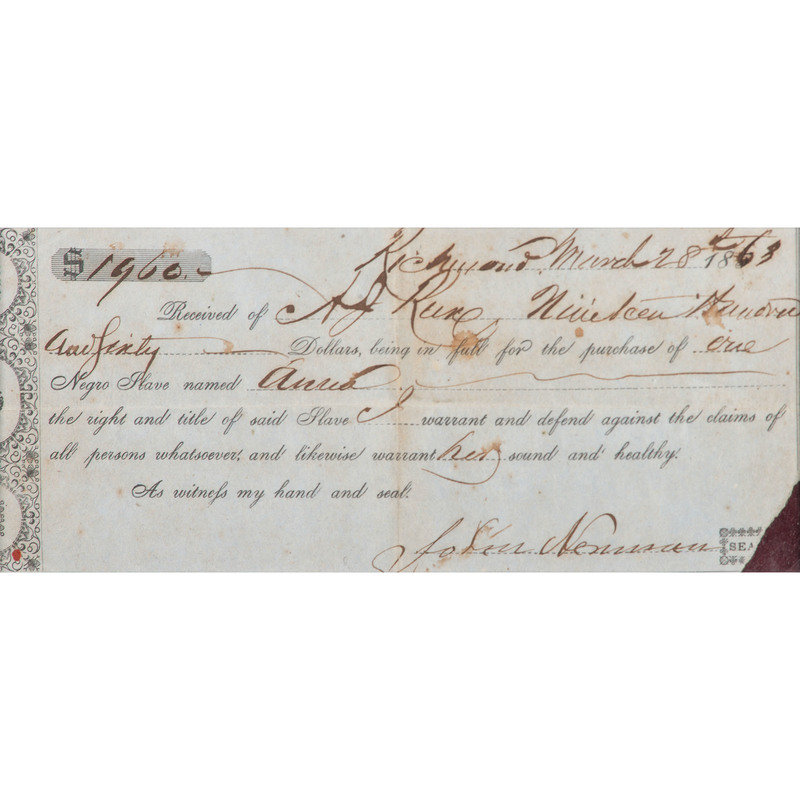 $1960.- Richmond March 28th 1863
Received of A J Rux, Nineteen Hundred
and sixty Dollars, being in full for the purchase of one
Negro Slave named Anna
the right and title of said Slave I warrant and defend against the claims of
all persons whatsoever, and likewise warrant her sound and healthy.
As witness my hand and seal.
John Newman SEA